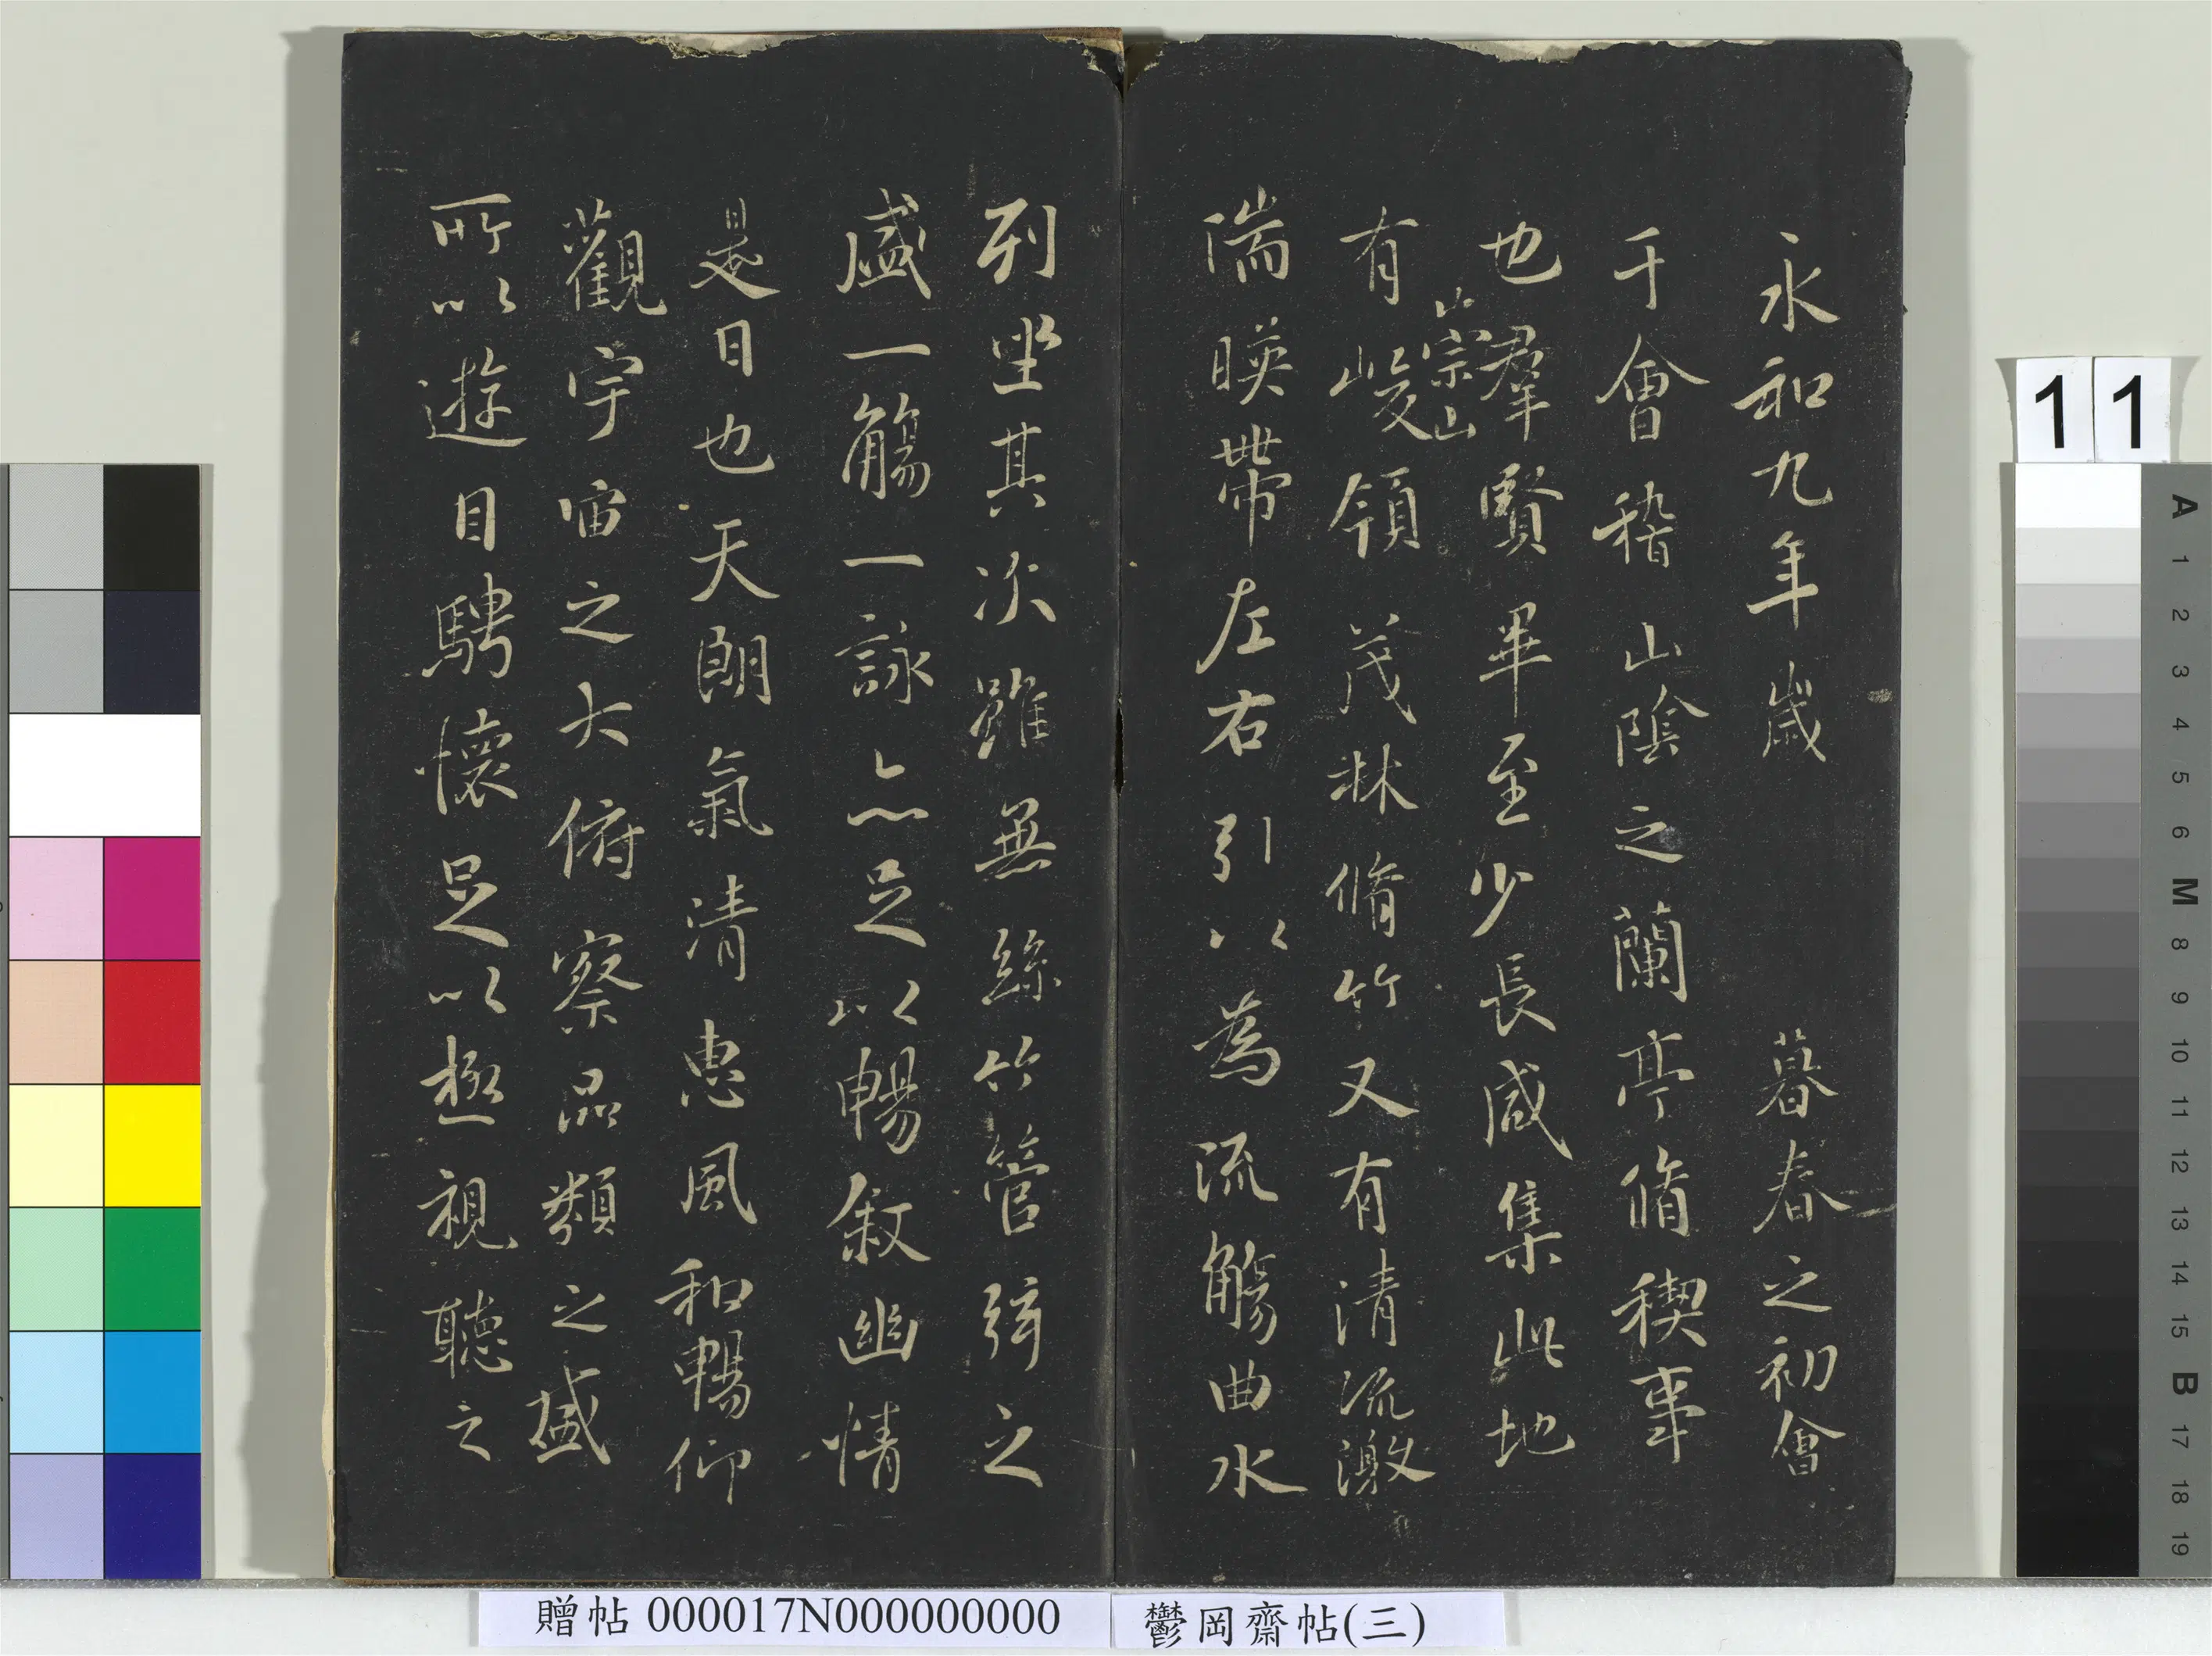 永和九年歲 暮春之初會
于會稽山陰之蘭亭脩稧事
也羣賢畢至少長咸集此地
有崇山峻領茂林脩竹又有清流激
湍暎帶左右引以為流觴曲水
列坐其次雖無絲竹管弦之
盛一觴一詠亦足以暢敘幽情
是日也天朗氣清惠風和暢仰
觀宇宙之大俯察品類之盛
所以遊目騁懷足以極視聽之
11
A 1 2 3 4 5 6 M 8 9 10 11 12 13 14 15 B 17 18 19
贈帖 000017N000000000
鬱岡齋帖(三)